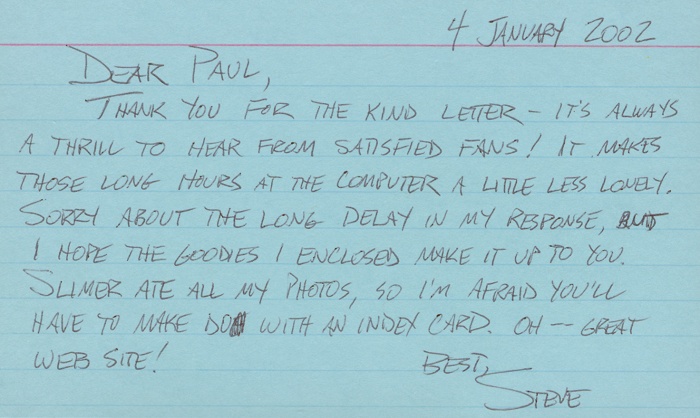 4 JANUARY 2002
DEAR PAUL,
THANK YOU FOR THE KIND LETTER – IT'S ALWAYS
A THRILL TO HEAR FROM SATISFIED FANS! IT MAKES
THOSE LONG HOURS AT THE COMPUTER A LITTLE LESS LONELY.
SORRY ABOUT THE LONG DELAY IN MY RESPONSE, BUT
I HOPE THE GOODIES I ENCLOSED MAKE IT UP TO YOU.
SLIMER ATE ALL MY PHOTOS, SO I'M AFRAID YOU'LL
HAVE TO MAKE DO WITH AN INDEX CARD. OH -- GREAT
WEB SITE!
BEST,
STEVE